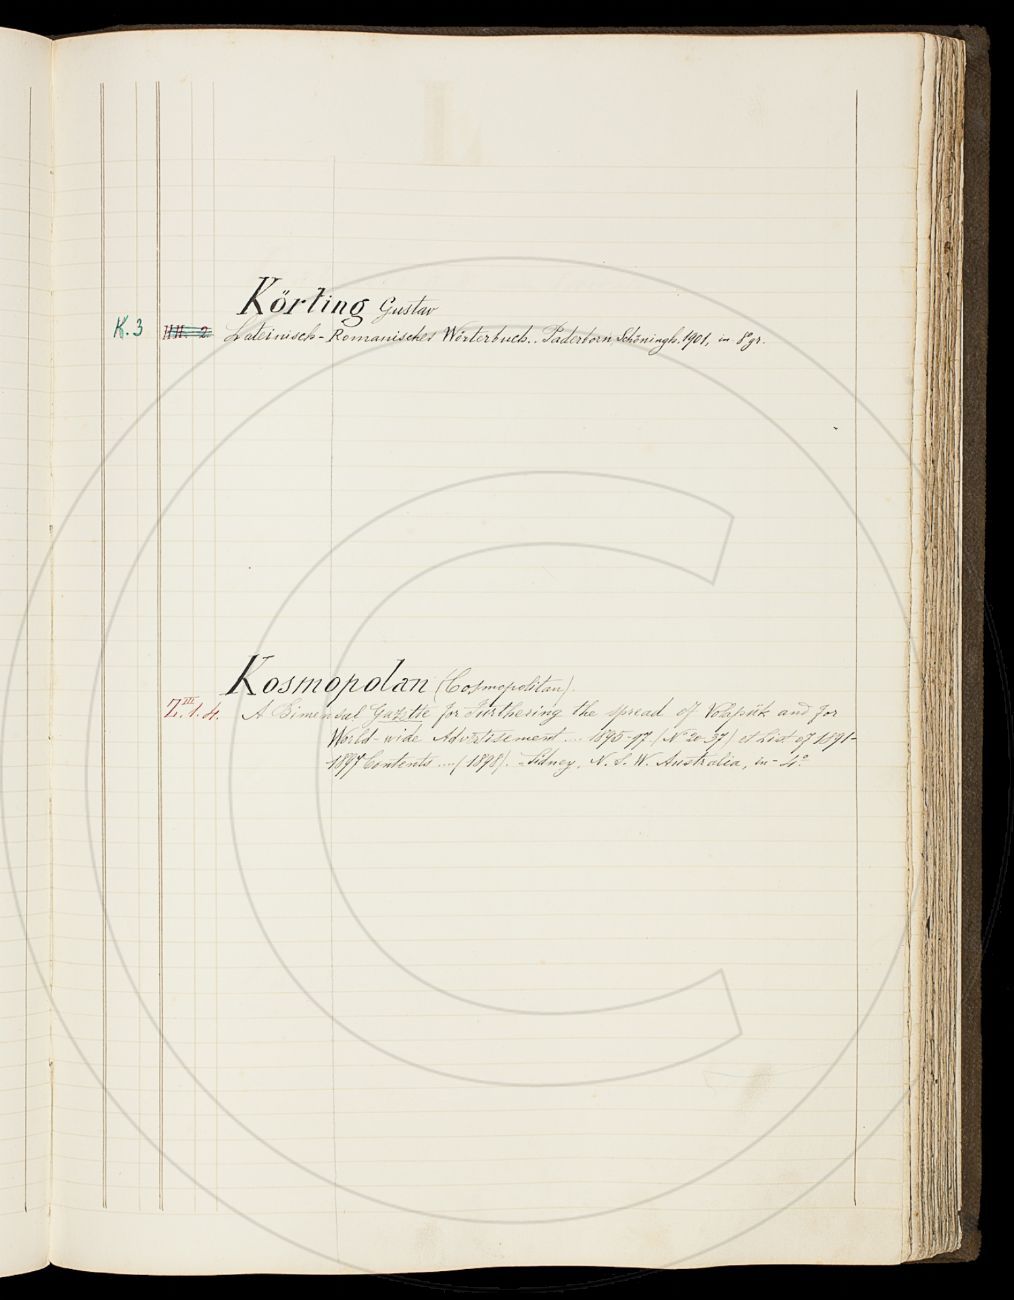 Körting Gustav
K.3 HH. 2. Lateinisch-Romanisches Wörterbuch.. Paderborn Schöningh. 1901, in 8° gr.
Kosmopolan (Cosmopolitan).
Z.III.1.4. A Bimensal Gazette for Furthering the spread of Volapük and for
World-wide Advertisement .... 1895-97 (N° 20-37) et List of 1891-
1897 Contents .... (1898). - Sidney, N. S. W. Australia, in-4°